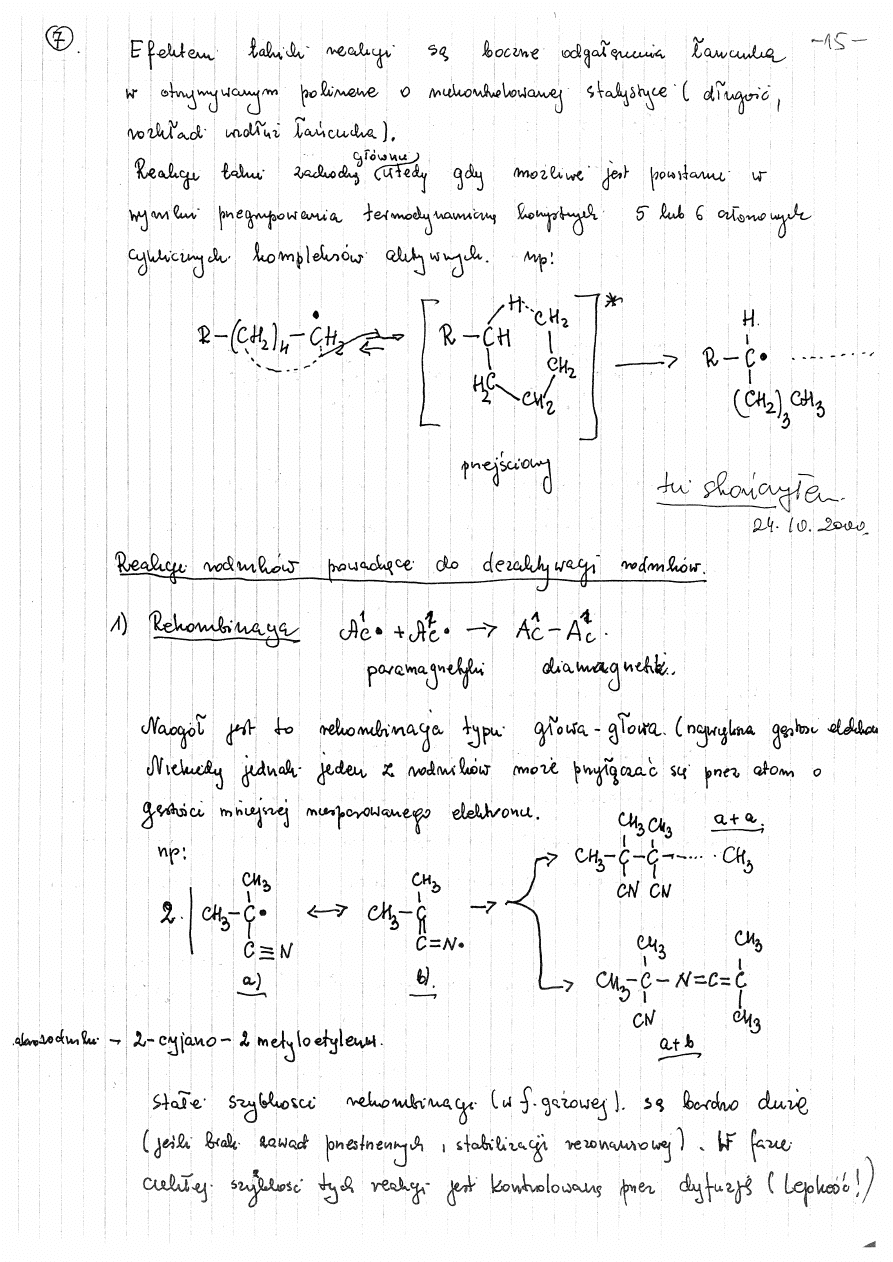 7
-15-
Efektem takich reakcji są boczne odgałęzienia łańcucha
w otrzymywanym polimerze o niekontrolowanej statystyce (długość,
rozkład wzdłuż łańcucha).
Reakcje takie zachodzą głównie wtedy gdy możliwe jest powstanie w
wyniku przegrupowania termodynamicznie korzystnych 5 lub 6 członowych
cyklicznych kompleksów aktywnych. np:
R-(CH2)4-CH2 [R-CH H CH2 CH2 CH2 H2C]* → R-C• ......
H
(CH2)3CH3
przejściowy
tu skończyłem.
24.10.2000.
Reakcje rodników prowadzące do dezaktywacji rodników.
1) Rekombinacja Ac1• + Ac2• → Ac1-Ac2.
paramagnetyki diamagnetik..
Naogół jest to rekombinacja typu głowa-głowa. (największa gęstość elektron
Niekiedy jednak jeden z rodników może przyłączać się przez atom o
gęstości mniejszej niesparowanego elektronu.
np:
CH3 CH3 a+a
CH3-C-C-.....CH3
CN CN
CH3 CH3
2. CH3-C• ↔ CH3-C →
C≡N C=N•
a) b).
CH3 CH3
CH3-C-N=C=C
CN CH3
a+b
→ 2-cyjano-2 metyloetylenu.
stałe szybkości rekombinacji (w f. gazowej). są bardzo duże
(jeśli brak zawad przestrzennych, stabilizacji rezonansowej). W fazie
ciekłej szybkość tych reakcji jest kontrolowana przez dyfuzję (Lepkość!)